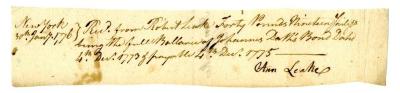 New York
30th Jany 1776 } Recd. from Robert Leake Forty Pounds Nineteen
being the full Ballance of Johannes Bond Date
4th Decr. 1773 & payable 4th Decr. 1775
Ann Leake